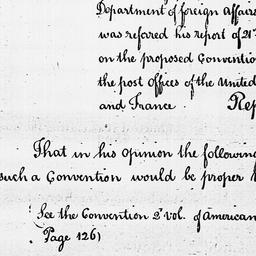 Department of foreign Affairs
was refered his report of 21st
on the proposed Convention
the post offices of the United
and France. Rep
That in his opinion the following
such a Convention would be proper
(See the Convention 2d vol. of American
Page 126)